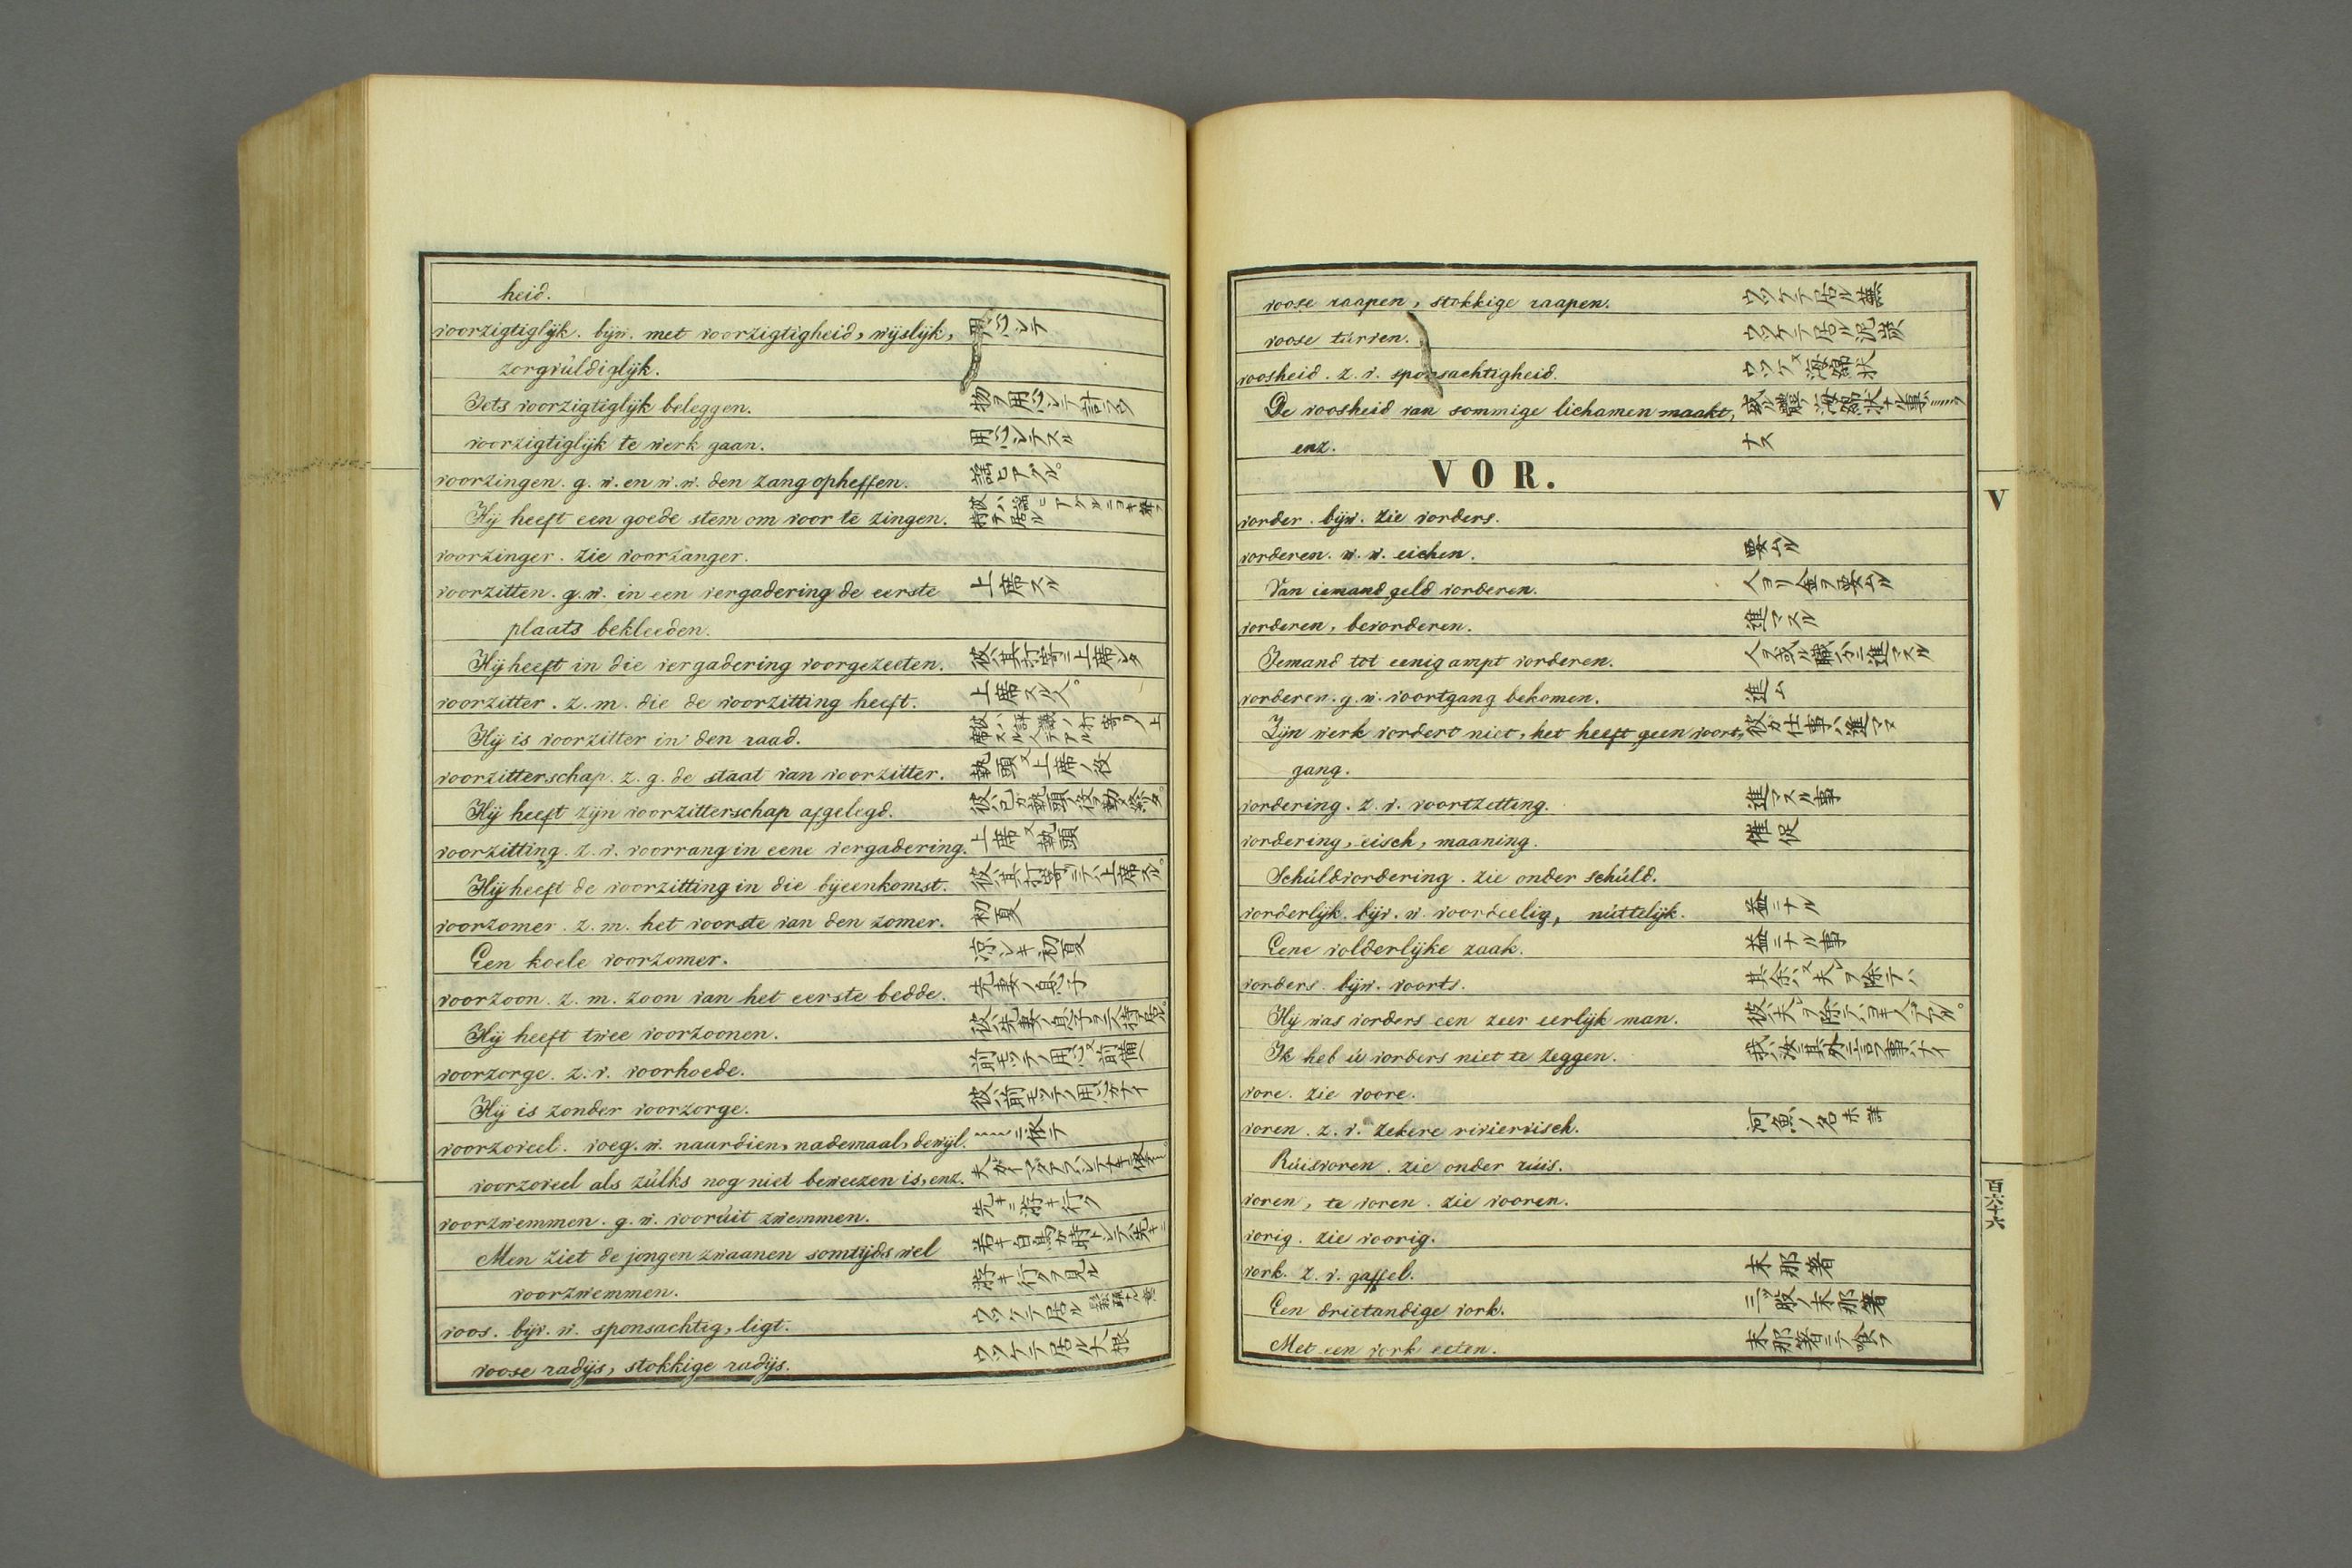 heid.
voorzigtiglijk. bijw. met voorzigtigheid, wijslijk, 用心シテ
zorgvúldiglijk.
Iets voorzigtiglijk beleggen. 物ヲ用心シテ計ラウ
voorzigtiglijk te werk gaan. 用心シテスル
voorzingen. g. w. en w. w. den zang opheffen. 謡ヒアグル。
Hij heeft een goede stem om voor te zingen.
voorzinger. zie voorzanger.
voorzitten. g. w. in een vergadering de eerste 上席スル
plaats bekleeden.
Hij heeft in die vergadering voorgezeeten. 彼ハ其打寄ニ上席シタ
voorzitter. z. m. die de voorzitting heeft. 上席スル人。
Hij is voorzitter in den raad. 彼ハ評議ノ打寄ノ上席スル人デアル
voorzitterschap. z. g. de staat van voorzitter. 執頭又上席ノ役
Hij heeft zijn voorzitterschap afgelegd. 彼ハ己カ執頭ノ役ヲ勤終タ。
voorzitting. z. v. voorrang in eene vergadering. 上席又執頭
Hij heeft de voorzitting in die bijeenkomst. 彼ハ其打寄ニテハ上席スル。
voorzomer. z. m. het voorste van den zomer. 初夏
Een koele voorzomer. 涼シキ初夏
voorzoon. z. m. zoon van het eerste bedde. 先妻ノ息子
Hij heeft twee voorzoonen. 彼ハ先妻ノ息子ヲ二人持テ居。
voorzorge. z. v. voorhoede. 前モッテノ用心又前備ヘ
Hij is zonder voorzorge. 彼ハ前モッテノ用心ガナイ
voorzoveel. voeg. w. naardien, nademaal, dewijl. ニ依テ
voorzoveel als zúlks nog niet beweezen is, enz.
voorzwemmen. g. w. voorúit zwemmen. 先キニ游キ行ク
Men ziet de jongen zwaanen somtijds wel 若キ白鳥ガ時トシテ先キニ
voorzwemmen. 游キ行クヲ見ル
voos. bijv. w. sponsachtig, ligt. ウツケテ居ル
voose radijs, stokkige radijs. ウツケテ居ル大根
voose raapen, stokkige raapen. ウツケテ居ル蕪
voose túrven. ウツケテ居ル泥炭
voosheid. z. v. sponsachtigheid. ウツケ又海綿状
De voosheid van sommige lichamen maakt, 或ル體ノ海綿状ナル事ハ
enz. ナス
VOR.
vorder. bijw. zie vorders.
vorderen. w. w. eichen. 要ムル
Van iemand geld vorderen. 人ヨリ金ヲ要ムル
vorderen, bevorderen. 進マスル
Iemand tot eenig ampt vorderen. 人ヲ或ル職分ニ進マスル
vorderen. g. w. voortgang bekomen. 進ム
Zijn werk vordert niet, het heeft geen voort, 彼カ仕事ハ進マヌ
gang.
vordering. z. v. voortzetting. 進マスル事
vordering, eisch, maaning. 催促
Schúldvordering. zie onder schúld.
vorderlijk. bijv. w. voordeelig, núttelijk. 益ニナル
Eene volderlijke zaak. 益ニナル事
vorders. bijw. voorts. 其余ハ又夫レヲ除テハ
Hij was vorders een zeer eerlijk man. 彼ハ夫レヲ除テハヨキ人デアル。
Ik heb ú vorders niet te zeggen. 我ハ汝ニ其外ニ言フ事ハナイ
vore. zie voore.
voren. z. v. zekere riviervisch. 河魚ノ名未詳
Rúisvoren. zie onder rúis.
voren, te voren. zie vooren.
vorig. zie voorig.
vork. z. v. gaffel. 末那箸
Een drietandige vork. 三ツ股ノ末那箸
Met een vork eeten. 末那箸ニテ喰フ
V
百六十六